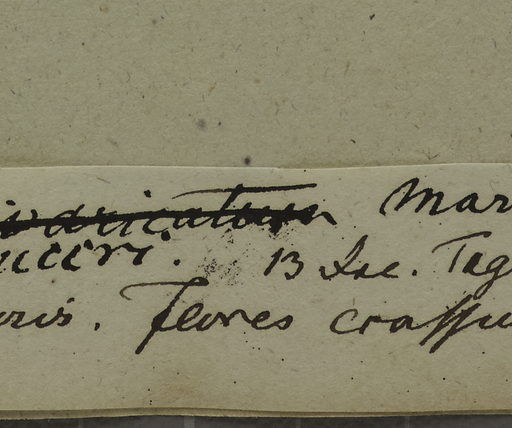 ivaricatum Mar
uceri. 13 Dec. Tag
oris. Flores crassiu